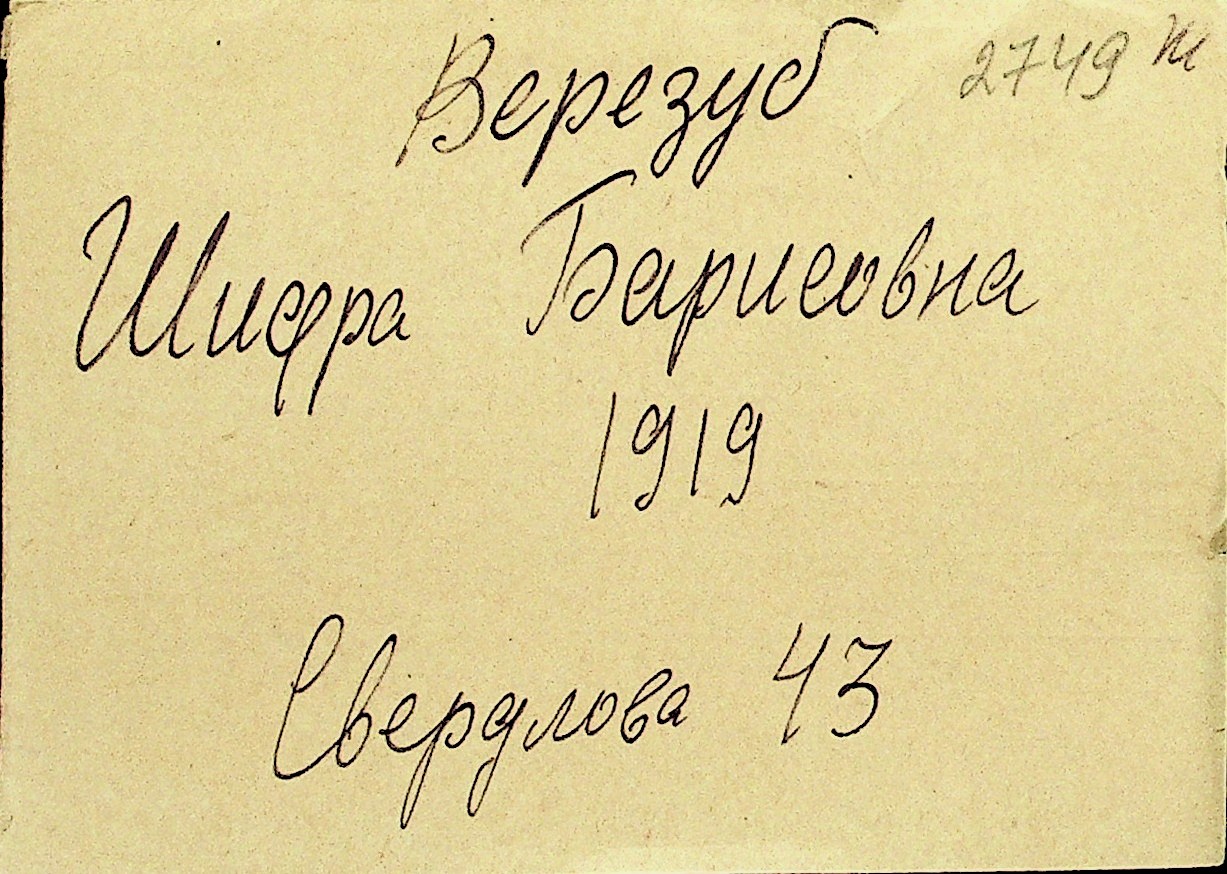 Верезуб 2749 ж
Шифра Барисовна
1919
Свердлова 43